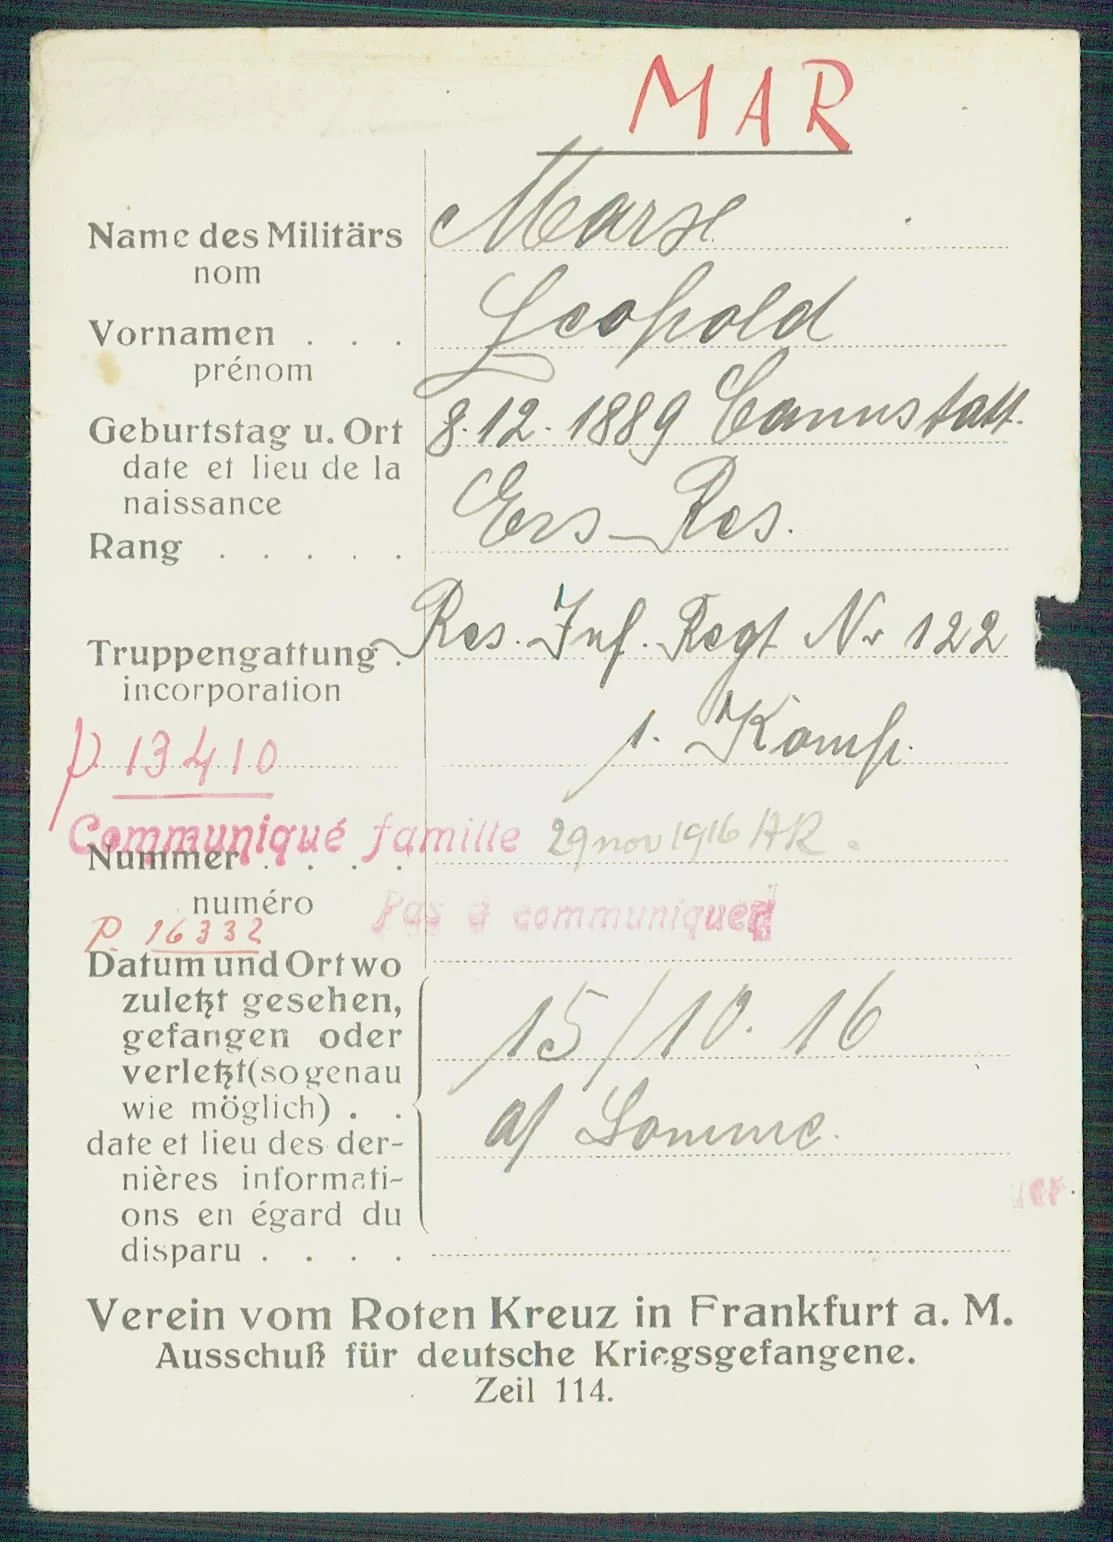 MAR
Name des Militärs Marx
nom
Vornamen . . . Leopold
prénom
Geburtstag u. Ort 8.12.1889 Cannstatt.
date et lieu de la
naissance
Rang . . . . . Ers-Res.
Truppengattung . Res. Inf. Regt Nr 122
incorporation
1. Komp.
p 13410
Communiqué famille 29 nov 1916 AR.
Nummer . . . .
numéro
Pas à communiquer
P. 16332
Datum und Ort wo
zuletzt gesehen,
gefangen oder
verletzt (so genau
wie möglich) . .
15/10. 16
a/ Somme.
date et lieu des der-
nières informati-
ons en égard du
disparu . . . .
Verein vom Roten Kreuz in Frankfurt a. M.
Ausschuß für deutsche Kriegsgefangene.
Zeil 114.